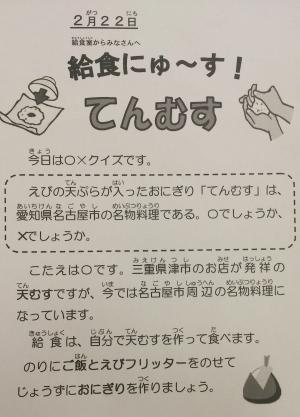 2月22日
給食室からみなさんへ
給食にゅ～す！
てんむす
今日は〇×クイズです。
えびの天ぷらが入ったおにぎり「てんむす」は、
愛知県名古屋市の名物料理である。〇でしょうか、
×でしょうか。
こたえは〇です。三重県津市のお店が発祥の
天むすですが、今では名古屋市周辺の名物料理に
なっています。
給食は、自分で天むすを作って食べます。
のりにご飯とえびフリッターをのせて
じょうずにおにぎりを作りましょう。